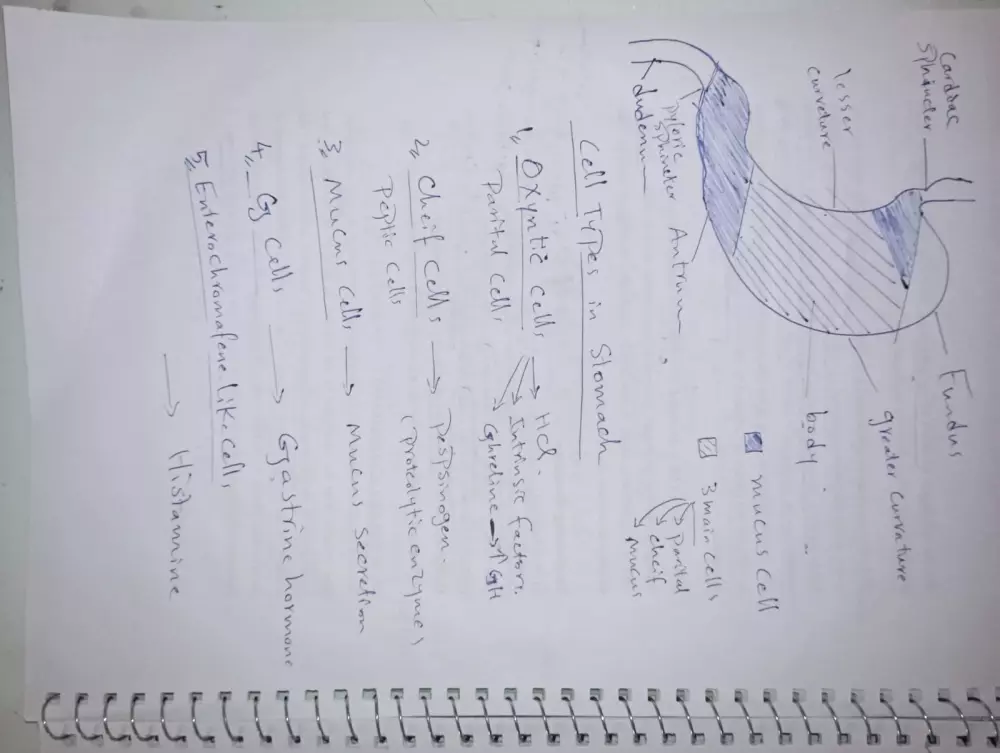 Cardiac
sphincter
lesser
curveture
Fundus
greater curvature
body
mucus cell
3 main cells
Parital
cheif
mucus
Pyloric
sphincter
Antrum
dudenum
Cell Types in Stomach
1, Oxyntic cells → HCl.
Parital cells → Intrinsic factors.
Ghreline → ↑ GH
2, Cheif cells → Pespsinogen.
Peptic cells (proteolytic enzymes)
3, Mucus cells → Mucus secretion
4, G cells → Gastrine hormone
5, Enterochromafene like cells
→ Histamine